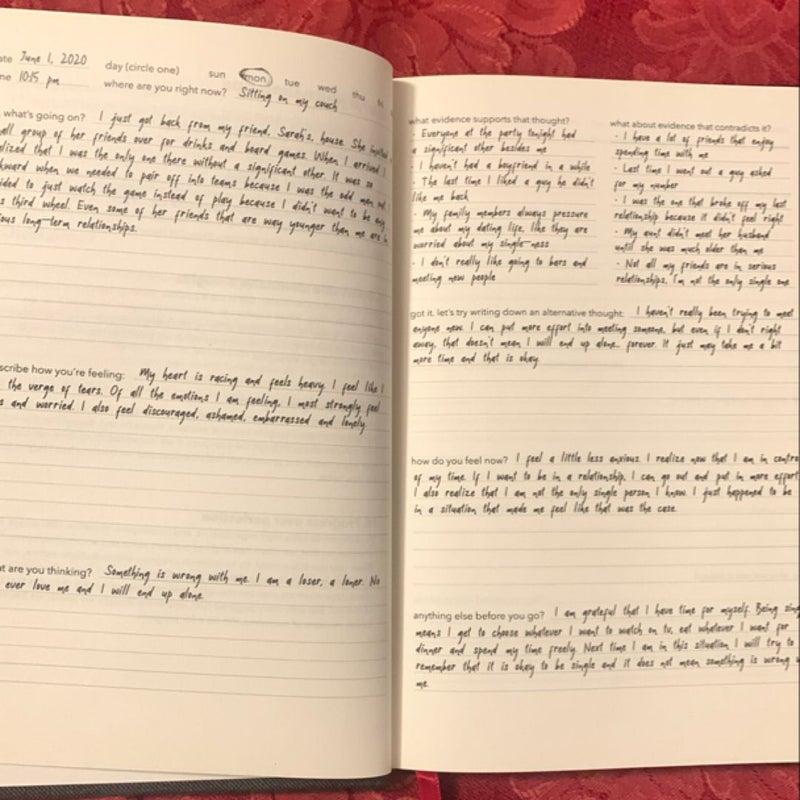 ate June 1, 2020 day (circle one) sun mon tue wed thu
me 10:15 pm where are you right now? Sitting on my couch
what's going on? I just got back from my friend, Sarah's, house. She
all group of her friends over for drinks and board games. When I arrived I
lized that I was the only one there without a significant other. It was so
kward when we needed to pair off into teams because I was the odd man out. I
ided to just watch the game instead of play because I didn't want to be any
s third wheel. Even some of her friends that are way younger than me are in
ious long-term relationships.
scribe how you're feeling: My heart is racing and feels heavy. I feel like I
the verge of tears. Of all the emotions I am feeling, I most strongly feel
s and worried. I also feel discouraged, ashamed, embarrassed and lonely.
at are you thinking? Something is wrong with me. I am a loser, a loner. No
ever love me and I will end up alone.
what evidence supports that thought?
- Everyone at the party tonight had
a significant other besides me
- I haven't had a boyfriend in a while
- The last time I liked a guy he didn't
like me back
- My family members always pressure
me about my dating life, like they are
worried about my single-ness
- I don't really like going to bars and
meeting new people
what about evidence that contradicts it?
- I have a lot of friends that enjoy
spending time with me
- Last time I went out a guy asked
for my number
- I was the one that broke off my last
relationship because it didn't feel right
- My aunt didn't meet her husband
until she was much older than me
- Not all my friends are in serious
relationships. I'm not the only single one
got it. let's try writing down an alternative thought: I haven't really been trying to meet
anyone new. I can put more effort into meeting someone, but even if I don't right
away, that doesn't mean I will end up alone... forever. It just may take me a bit
more time and that is okay.
how do you feel now? I feel a little less anxious. I realize now that I am in contro
of my time. If I want to be in a relationship, I can go out and put in more effort.
I also realize that I am not the only single person I know. I just happened to be
in a situation that made me feel like that was the case.
anything else before you go? I am grateful that I have time for myself. Being sing
means I get to choose whatever I want to watch on tv, eat whatever I want for
dinner and spend my time freely. Next time I am in this situation I will try to
remember that it is okay to be single and it does not mean something is wrong w
me.